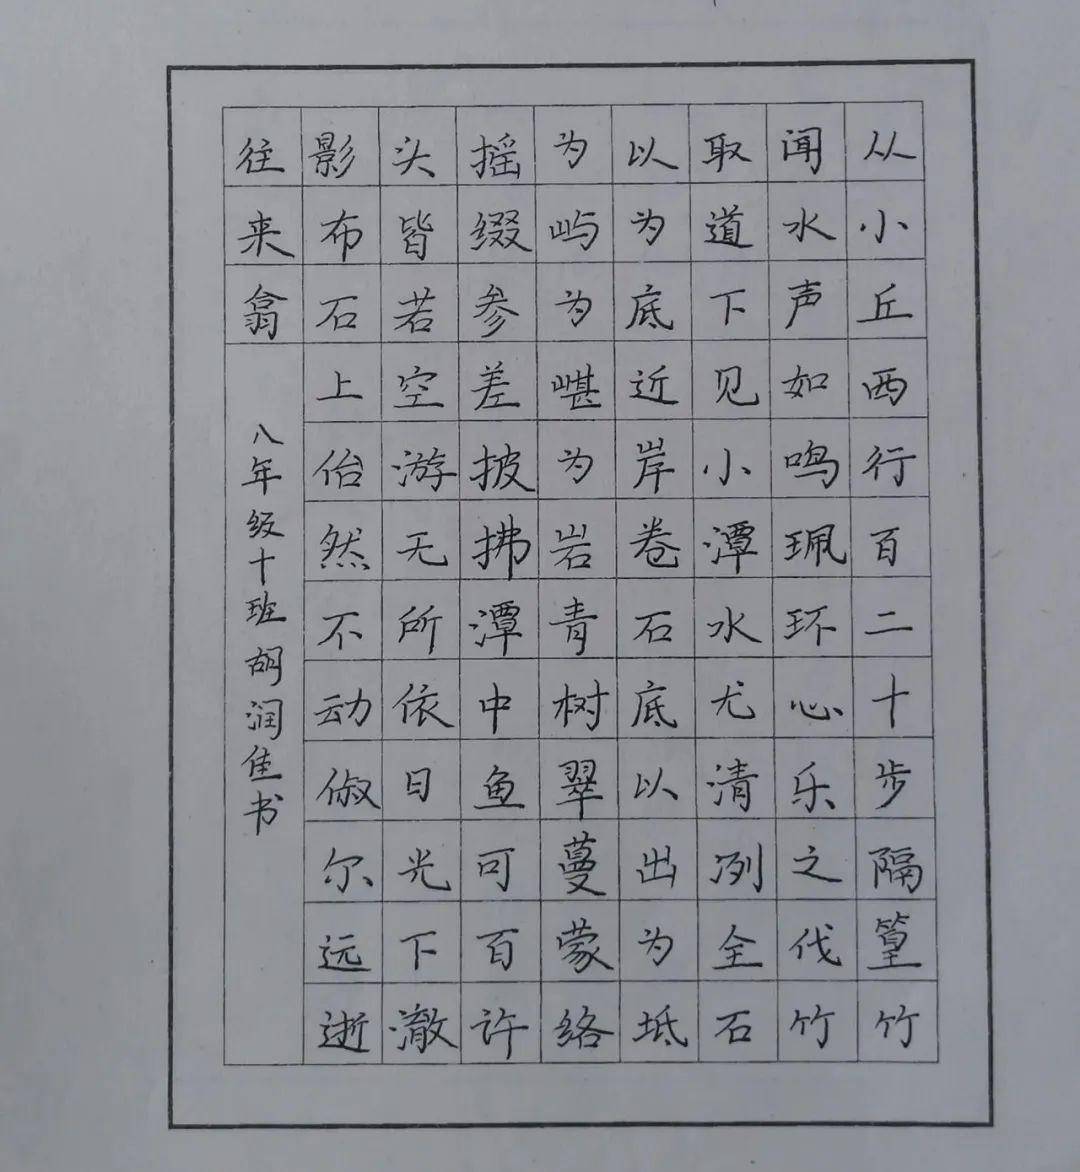 从小丘西行百二十步隔篁竹
闻水声如鸣珮环心乐之伐竹
取道下见小潭水尤清冽全石
以为底近岸卷石底以出为坻
为屿为嵁为岩青树翠蔓蒙络
摇缀参差披拂潭中鱼可百许
头皆若空游无所依日光下澈
影布石上佁然不动俶尔远逝
往来翕
八年级十班 胡润佳书